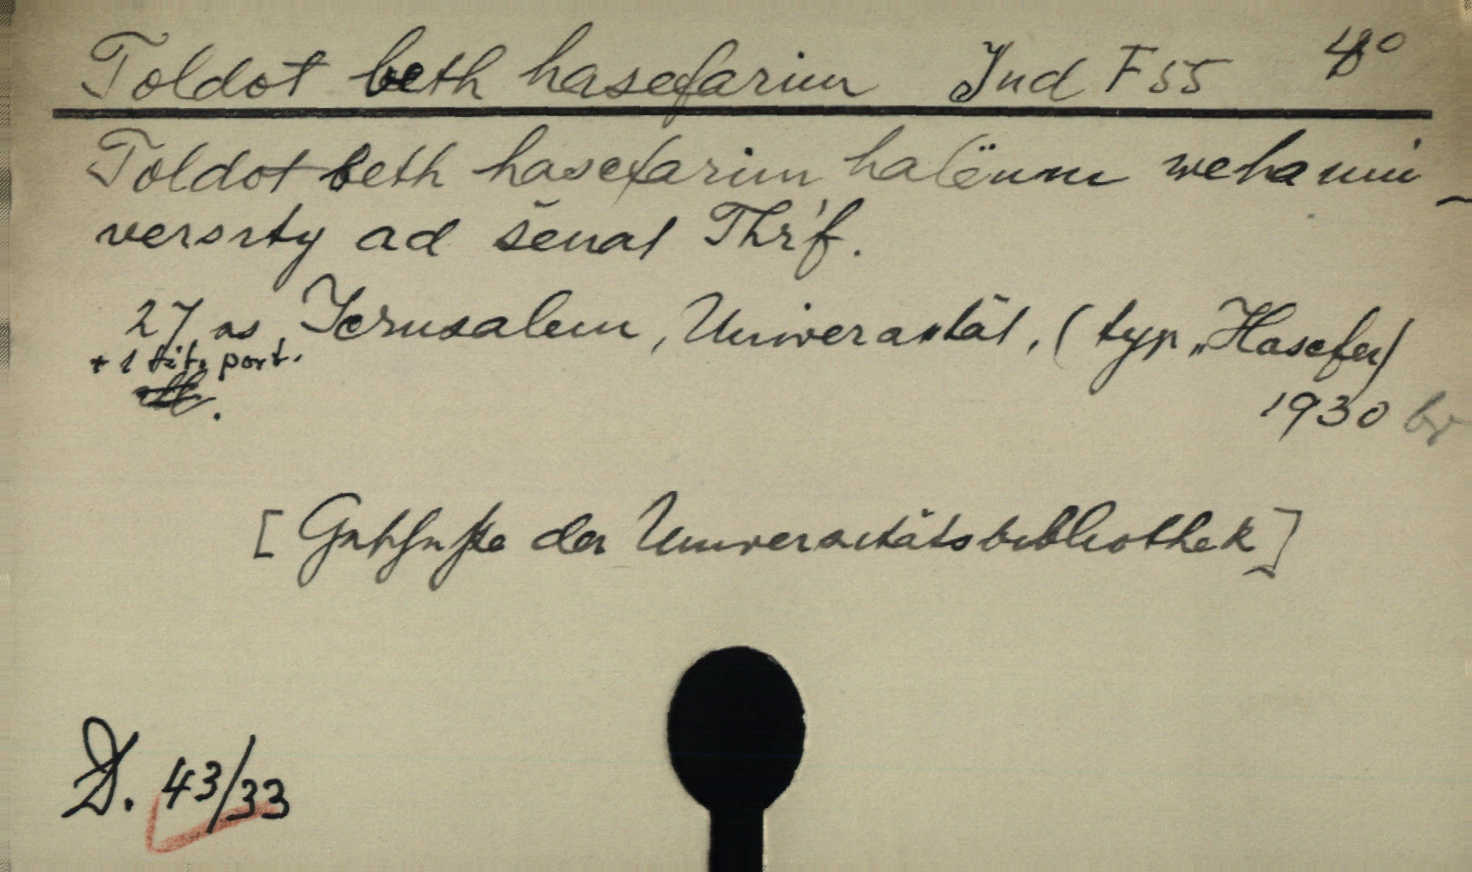 Toldot beth hasefarim Jud F 55 4°
Toldot beth hasefarim halëumi wehauni-
versity ad šenat Thr'f.
27 as Jerusalem, Universität, (typ „Hasefer)
+ 1 tit. port.
1930 br
[Geschichte der Universitätsbibliothek]
D. 43/33